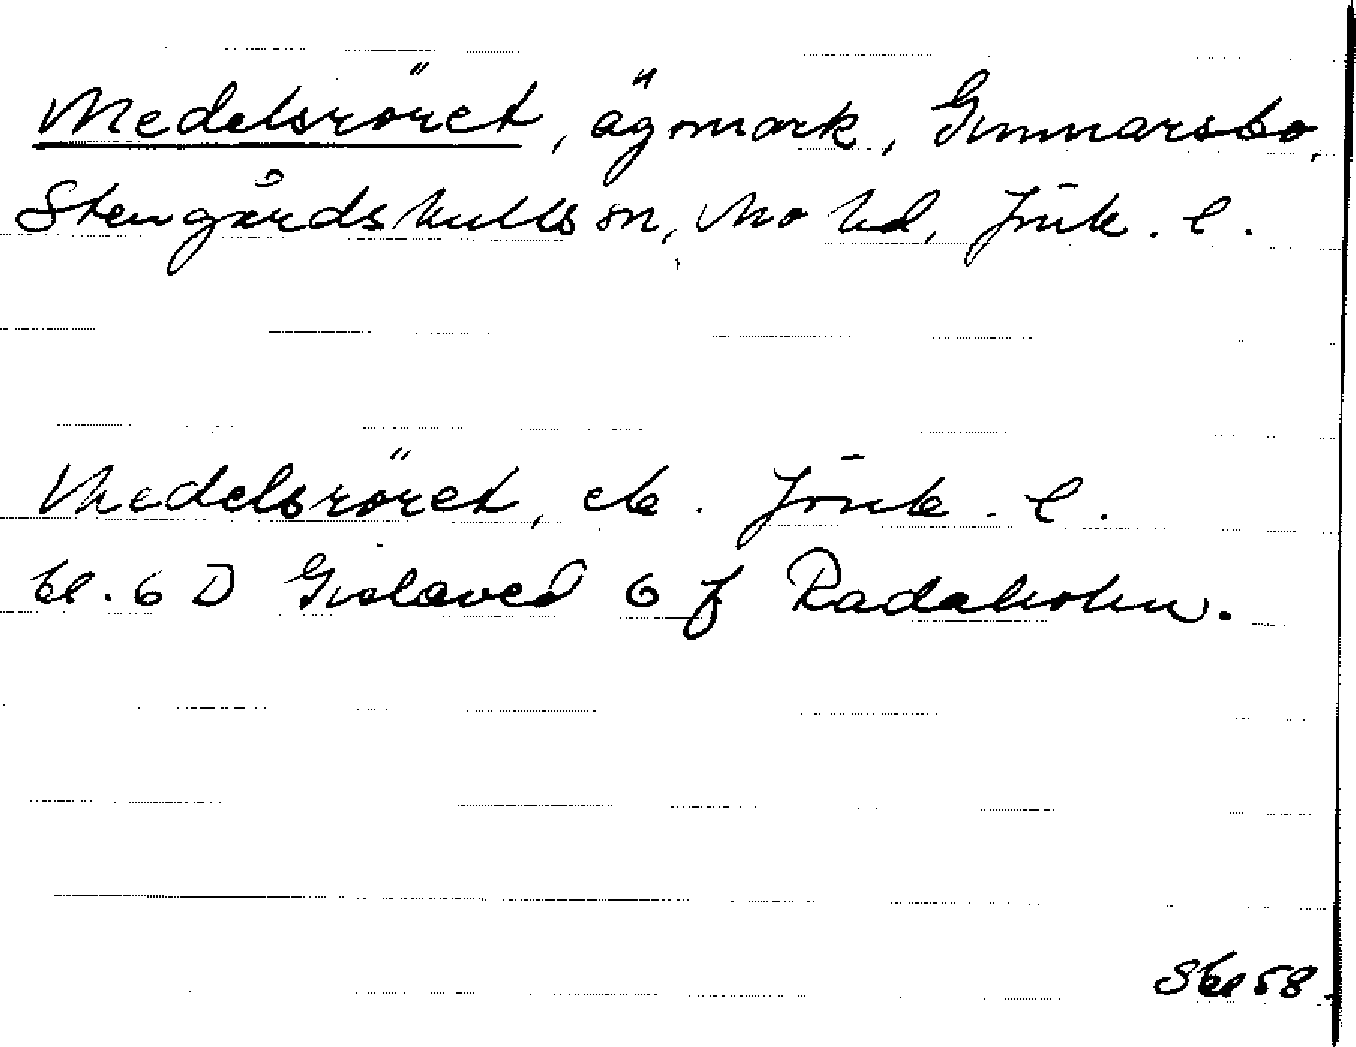 Medelsröret, ägomark, Gunnarsbo,
Stengårdshults sn, Mo hd, Jönk. l.
Medelsröret, ek. Jönk. l.
bl. 6 D Gislaved 6 f Radaholm.
Skr 58.